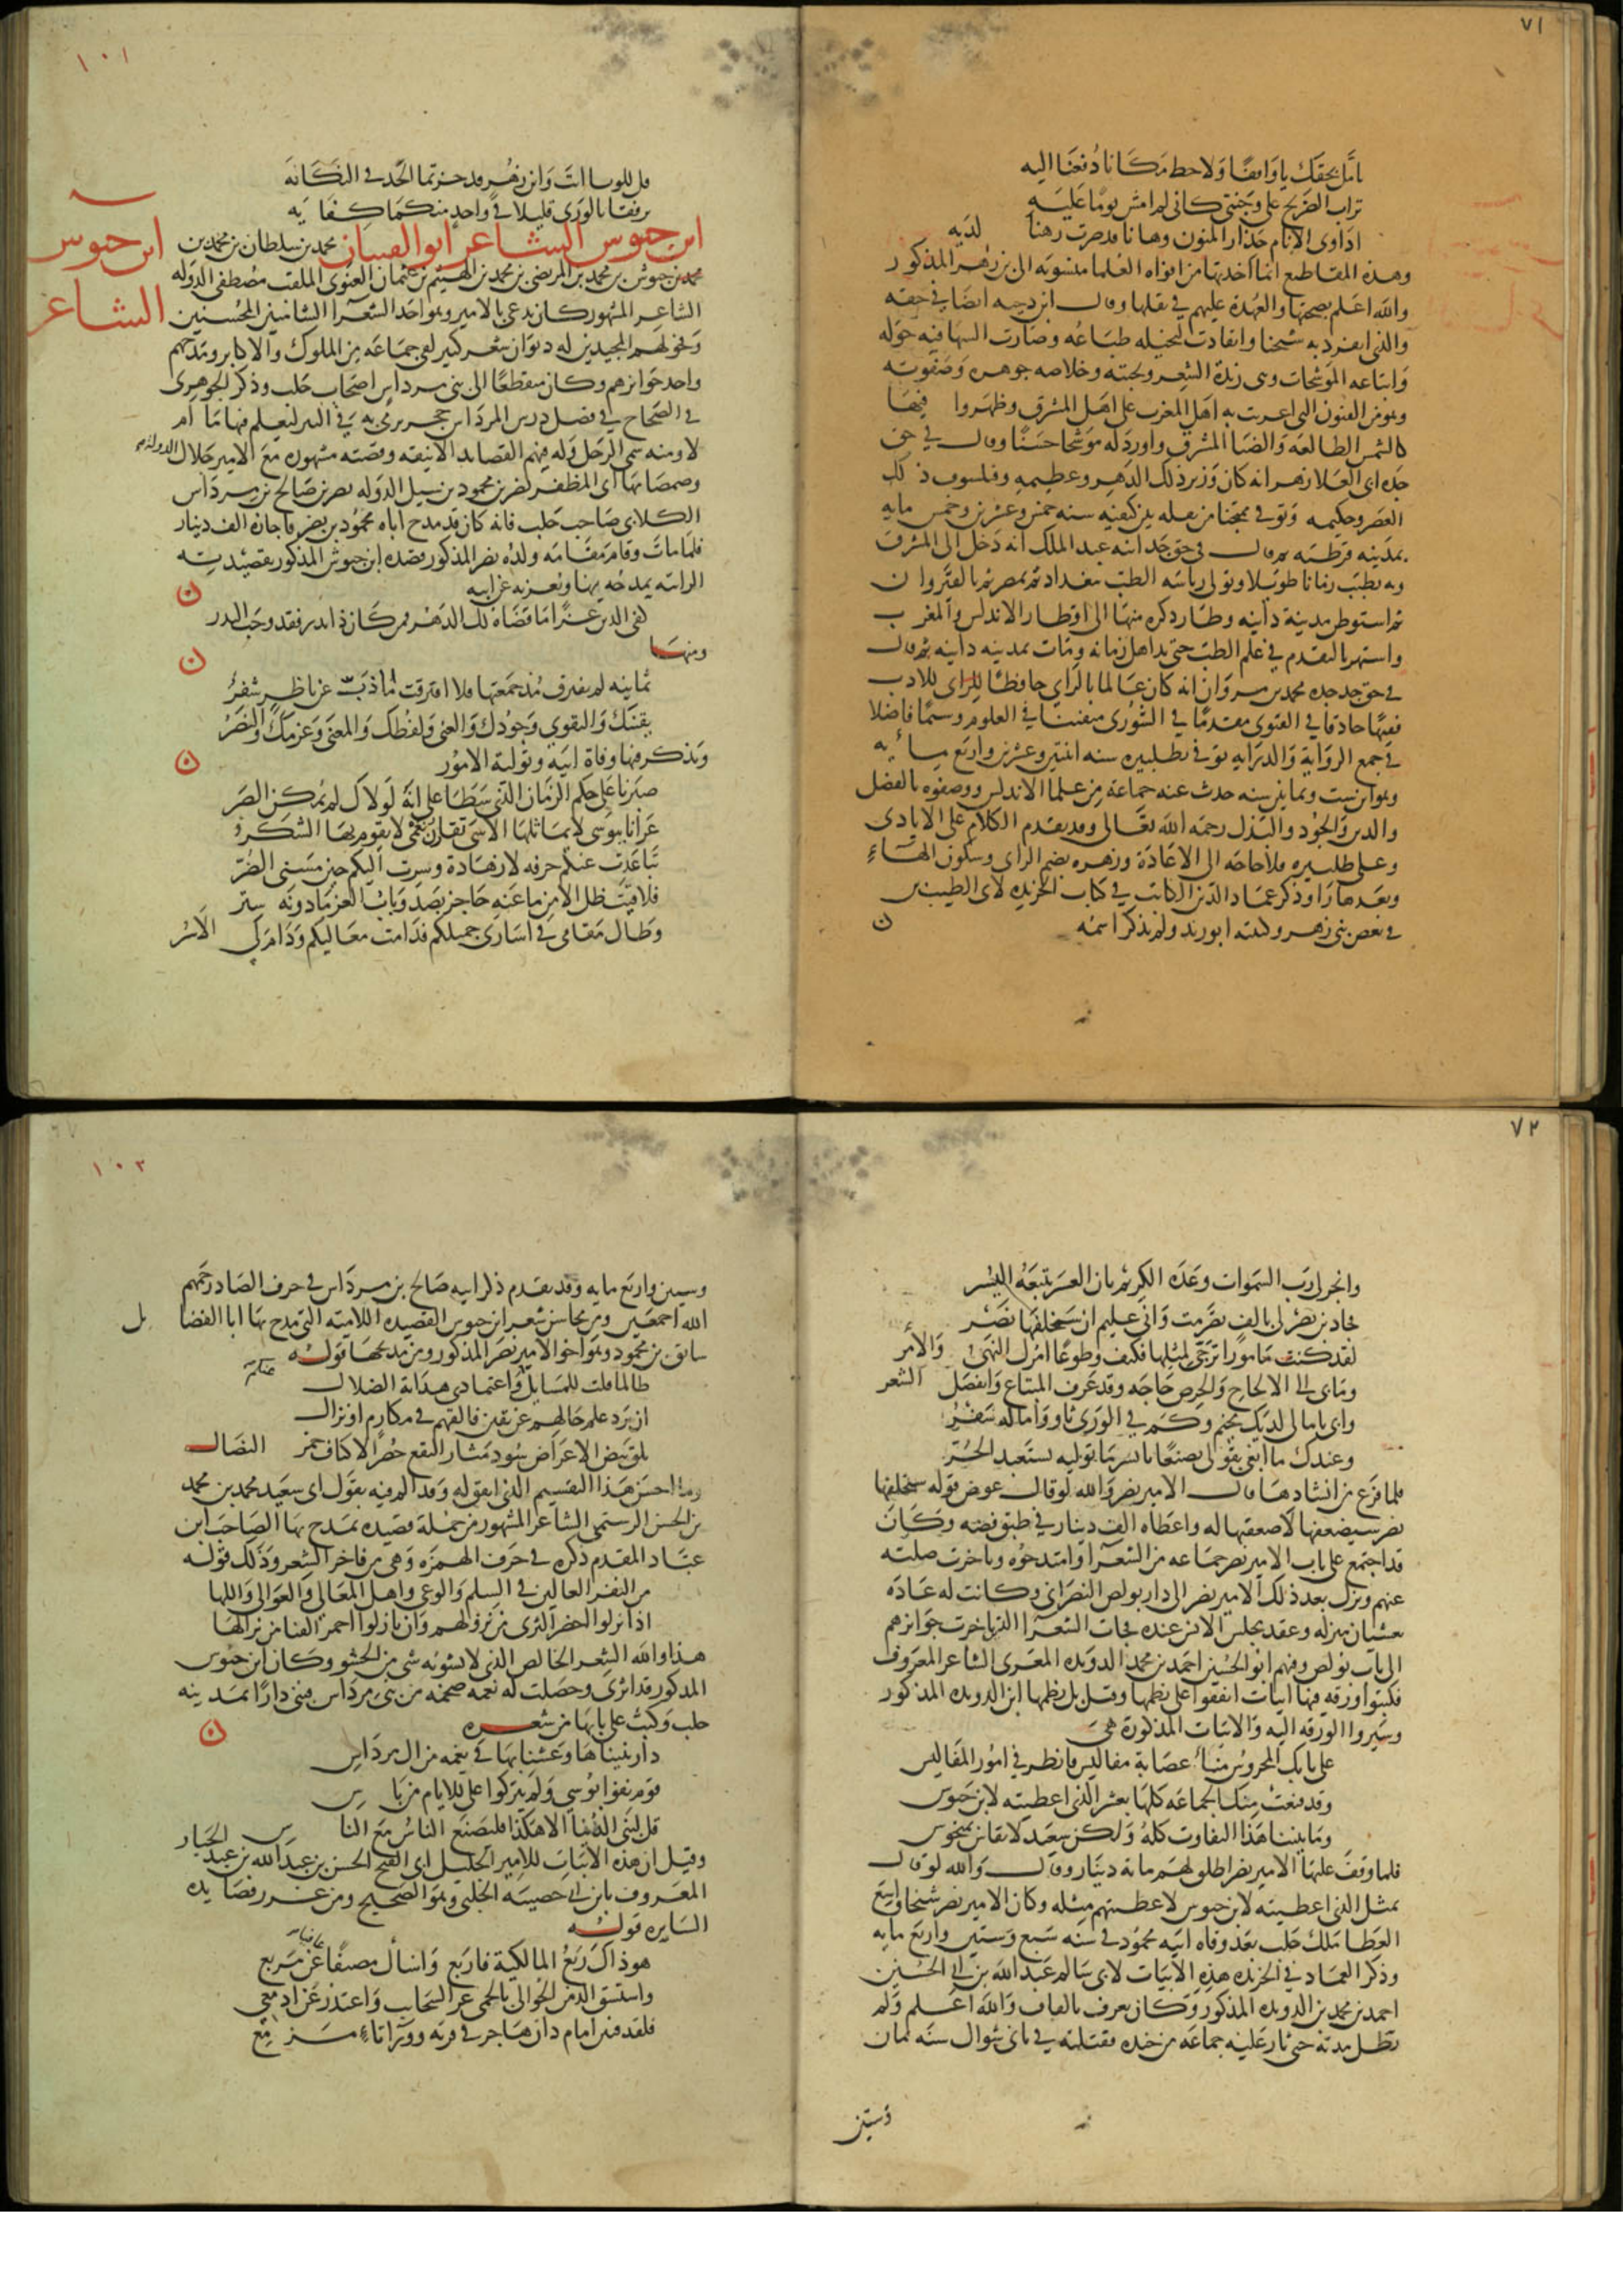 ٧١
تأمل بحقك يا واقفا ولاحظ مكانا دفعنا اليه
تراب الضريح على وجنتي كاني لم امش يوما عليه
اداوى الانام حذار المنون وها انا قد صرت رهنا لديه
وهذه المقاطيع انما اخذتها من افواه العلما منسوبة الى بن زهر المذكور
والله اعلم بصحتها والعهدة عليهم في نقلها وقال ابن دحيه ايضا في حقه
والذى انفرد به شيخنا وانقادت لتخيله طباعه وصارت النبها فيه خوله
واتباعه الموشحات وهى زبدة الشعر ونخبته وخلاصه جوهره وصفوته
وهو من الفنون التى اغربت به اهل المغرب على اهل المشرق وظهروا فيها
كالشمس الطالعه والضيا المشرق واورد له موشحا حسنا وقال في حق
جده ابى العلا زهر انه كان وزير ذلك الدهر وعظيمه وفيلسوف ذلك
العصر وحكيمه وتوفي ممتحنا من نغله بين كتفيه سنه خمس وعشرين وخمس مايه
بمدينه قرطبه ثم قال في حق جد ابيه عبد الملك انه دخل الى المشرق
وبه تطبب زمانا طويلا وتولى رياسه الطب ببغداد ثم بمصر ثم بالقيروان
ثم استوطن مدينة دانيه وطار ذكره منها الى اقطار الاندلس والمغرب
واشتهر بالتقدم في علم الطب حتى بذ اهل زمانه ومات بمدينه دانيه ثم قال
في حق جد جده محمد بن مروان انه كان عالما بالراي حافظا للادب
فقيها حاذقا في الفتوى مقدما في الشورى متفننا في العلوم وسيما فاضلا
في جمع الرواية والدرايه توفي بطلبيره سنه اثنتين وعشرين واربع مائه
وهو ابن ست وثمانين سنه حدث عنه جماعة من علما الاندلس ووصفوه بالفضل
والدين والجود والبذل رحمه الله تعالى وقد تقدم الكلام على الايادى
وعلى طلبيره فلا حاجه الى الاعادة وزهر بضم الزاى وسكون الهاء
وبعدها را وذكر عماد الدين الكاتب في كتاب الخريده لابى الطيب بن
في بعض بنى زهر وكنيته ابو زيد ولم يذكر اسمه
١٠١
قل للوبا انت وابن زهر قد جزتما الحد في النكانه
ترفقا بالورى قليلا في واحد منكما كفايه
ابن حيوس الشاعر
ابن حيوس الشاعر ابو الفتيان محمد بن سلطان بن محمد بن
محمد بن حيوس بن محمد بن المرتضى بن محمد بن الهيثم بن عثمان الغنوى الملقب مصطفى الدوله
الشاعر المشهور كان يدعى بالامير وهو احد الشعرآ الشاميين المحسنين
وفحولهم المجيدين له ديوان شعر كبير لقى جماعه من الملوك والاكابر ومدحهم
واخذ جوايزهم وكان منقطعا الى بنى مرداس اصحاب حلب وذكر الجوهرى
في الصحاح في فصل درس المرداس حجر يرمى به في البير ليعلم فيها ما ام
لا ومنه سمى الرجل وله فيهم القصايد الانيقه وقصته مشهوره مع الامير جلال الدوله
وصمصامها ابى المظفر نصر بن محمود بن شبل الدوله نصر بن صالح بن مرداس
الكلابى صاحب حلب فانه كان قد مدح اباه محمود بن نصر فاجازه الف دينار
فلما مات وقام مقامه ولده نصر المذكور قصده ابن حيوش المذكور بقصيدته
الرائيه يمدحه بها ويعزيه عن ابيه
كفى الدين عزا ما قضاه لك الدهر فمن كان ذا نذر فقد وجب النذر
ومنها
ثمانيه لم تفترق مذ جمعتها فلا افترقت ما ذب عن ناظر شفر
يقينك والتقوى وجودك والغنى ولفظك والمعنى وعزمك والنصر
ويذكر فيها وفاة ابيه وتوليه الامور
صبرنا على حكم الزمان الذى سطا على انه لولاك لم يكن الصبر
غزانا ببوسى لا يماثلها الاسى تقارن نعمى لا يقوم بها الشكر
تباعدت عنكم حرفه لا زهادة وسرت اليكم حين مسنى الضر
فلاقيت ظل الامن ما عنه حاجز يصد وباب العز ما دونه ستر
وطال مقامى في اسارى جميلكم فدامت معاليكم ودام لى الاسر
٧٢
وانجز لى رب السموات وعده الكريم بان العسر يتبعه اليسر
فجاد بن نصر لى بالف تصرمت وانى عليم ان سيخلفها نصر
لقد كنت مامورا ترجى لمثلها فكيف وطوعا امرك النهى والامر
وما بى الى الالحاح والحرص حاجه وقد عرف المبتاع وانفصل الشعر
واى امالى لديك مخيم وكم في الورى ثاو واماله سفر
وعندك ما ابغى بقولى تصنعا بايسر ما توليه يستعبد الحر
فلما فرغ من انشادها قال الامير نصر والله لو قال عوض قوله سيخلفها
نصر سيضعفها لاضعفتها له واعطاه الف دينار في طبق فضه وكان
قد اجتمع على باب الامير نصر جماعه من الشعرآ وامتدحوه وتاخرت صلته
عنهم ونزل بعد ذلك الامير نصر الى دار بولص النصرانى وكانت له عاده
بغشيان منزله وعقد مجلس الانس عنده فجات الشعرآ الذين تاخرت جوايزهم
الى باب بولص وفيهم ابو الحسين احمد بن محمد الدويده المعرى الشاعر المعروف
فكتبوا ورقه فيها ابيات اتفقوا على نظمها وقيل بل نظمها ابن الدويده المذكور
وسيروا الورقه اليه والابيات المذكورة هى
على بابك المحروس منا عصابة مفاليس فانظر في امور المفاليس
وقد قنعت منك الجماعه كلها بعشر الذى اعطيته لابن حيوس
وما بيننا هذا التفاوت كله ولكن سعيد لا يقاس بمنحوس
فلما وقف عليها الامير نصر اطلق لهم مائة دينار وقال والله لو قال
بمثل الذى اعطيته لابن حيوس لاعطيتهم مثله وكان الامير نصر سخيا واسع
العطا ملك حلب بعد وفاه ابيه محمود في سنه سبع وستين واربع مايه
وذكر العماد في الخريده هذه الابيات لابى سالم عبد الله بن ابى الحسين
احمد بن محمد بن الدويده المذكور وكان يعرف بالقاف والله اعلم ولم
تطل مدته حتى ثار عليه جماعه من جنده فقتلته في ثانى شوال سنه ثمان
وستين
١٠٢
وستين واربع مايه وقد تقدم ذكر ابيه صالح بن مرداس في حرف الصاد رحمهم
الله اجمعين ومن محاسن شعر ابن حيوس القصيده اللاميه التى مدح بها ابا الفضايل
سابق بن محمود وهو اخو الامير نصر المذكور ومن مديحها قوله
طالما قلت للمسايل عنكم واعتمادى هداية الضلال
ان ترد علم حالهم عن يقين فالقهم في مكارم او نزال
تلق بيض الاعراض سود مثار النقع خضر الاكناف حمر النصال
وما احسن هذا التقسيم الذى اتفق له وقد الم فيه بقول ابى سعيد محمد بن محمد
بن الحسن الرستمى الشاعر المشهور من جملة قصيده يمدح بها الصاحب ابن
عباد المقدم ذكره في حرف الهمزه وهى من فاخر الشعر وذلك قوله
من النفر العالين في السلم والوغى واهل المعالى والعوالى والها
اذا نزلوا اخضر الثرى من نزولهم وان نازلوا احمر القنا من نزالها
هذا والله الشعر الخالص الذى لا يشوبه شى من الحشو وكان ابن حيوس
المذكور قد اثرى وحصلت له نعمه ضخمه من بنى مرداس فبنى دارا بمدينه
حلب وكتب على بابها من شعره
دار بنيناها وعشنا بها في نعمه من ال مرداس
قوم نفوا بوسى ولم يتركوا على للايام من باس
قل لبنى الدنيا الا هكذا فليصنع الناس مع الناس
وقيل ان هذه الابيات للامير الجليل ابى الفتح الحسن بن عبد الله بن عبد الجبار
المعروف بابن ابى حصينه الحلبى وهو الصحيح ومن غرر قصايده
السايره قوله
هو ذاك ربع المالكية فاربع واسأل مصيفا عافيا عن مربع
واستسق للدمن الخوالى بالحمى غر السحاب واعتذر عن ادمعى
فلقد فنين امام دان هاجر في قربه ووراء ناء مزمع